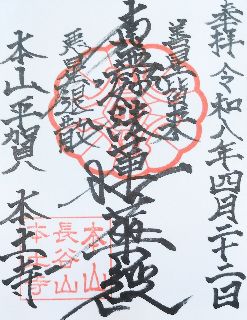 奉拝 令和八年四月二十二日
善星皆来
南無妙法蓮華経
悪星退散
本山平賀 本土寺
本山
長谷山
本土寺